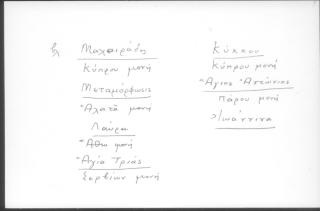 Μαχαιράδη
Κύπρου μονή
Μεταμόρφωσις
Ἀχατᾶ μονή
Λαύρα
Ἄθω μονή
Ἁγία Τριάς
Σερβίων μονή
Κύκκου
Κύπρου μονή
Ἅγιος Ἀντώνιος
Πάρου μονή
Ἰωάννινα